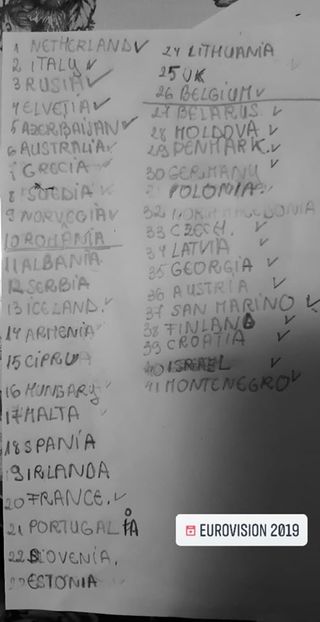 1 NETHERLAND ✓
2 ITALY ✓
3 RUSIA ✓
4 ELVEȚIA ✓
5 AZERBAIJAN ✓
6 AUSTRALIA ✓
7 GRECIA
8 SUEDIA
9 NORVEGIA ✓
10 ROMÂNIA
11 ALBANIA
12 SERBIA
13 ICELAND. ✓
14 ARMENIA
15 CIPRU
16 HUNGARY
17 MALTA
18 SPANIA
19 IRLANDA
20 FRANCE. ✓
21 PORTUGAL
22 SLOVENIA.
23 ESTONIA
24 LITHUANIA
25 UK
26 BELGIUM ✓
27 BELARUS. ✓
28 MOLDOVA ✓
29 DENMARK. ✓
30 GERMANY
POLONIA
32 MACEDONIA
33 CZECH. ✓
34 LATVIA ✓
35 GEORGIA ✓
36 AUSTRIA ✓
37 SAN MARINO ✓
38 FINLAND ✓
39 CROATIA ✓
40 ISRAEL ✓
41 MONTENEGRO ✓
EUROVISION 2019